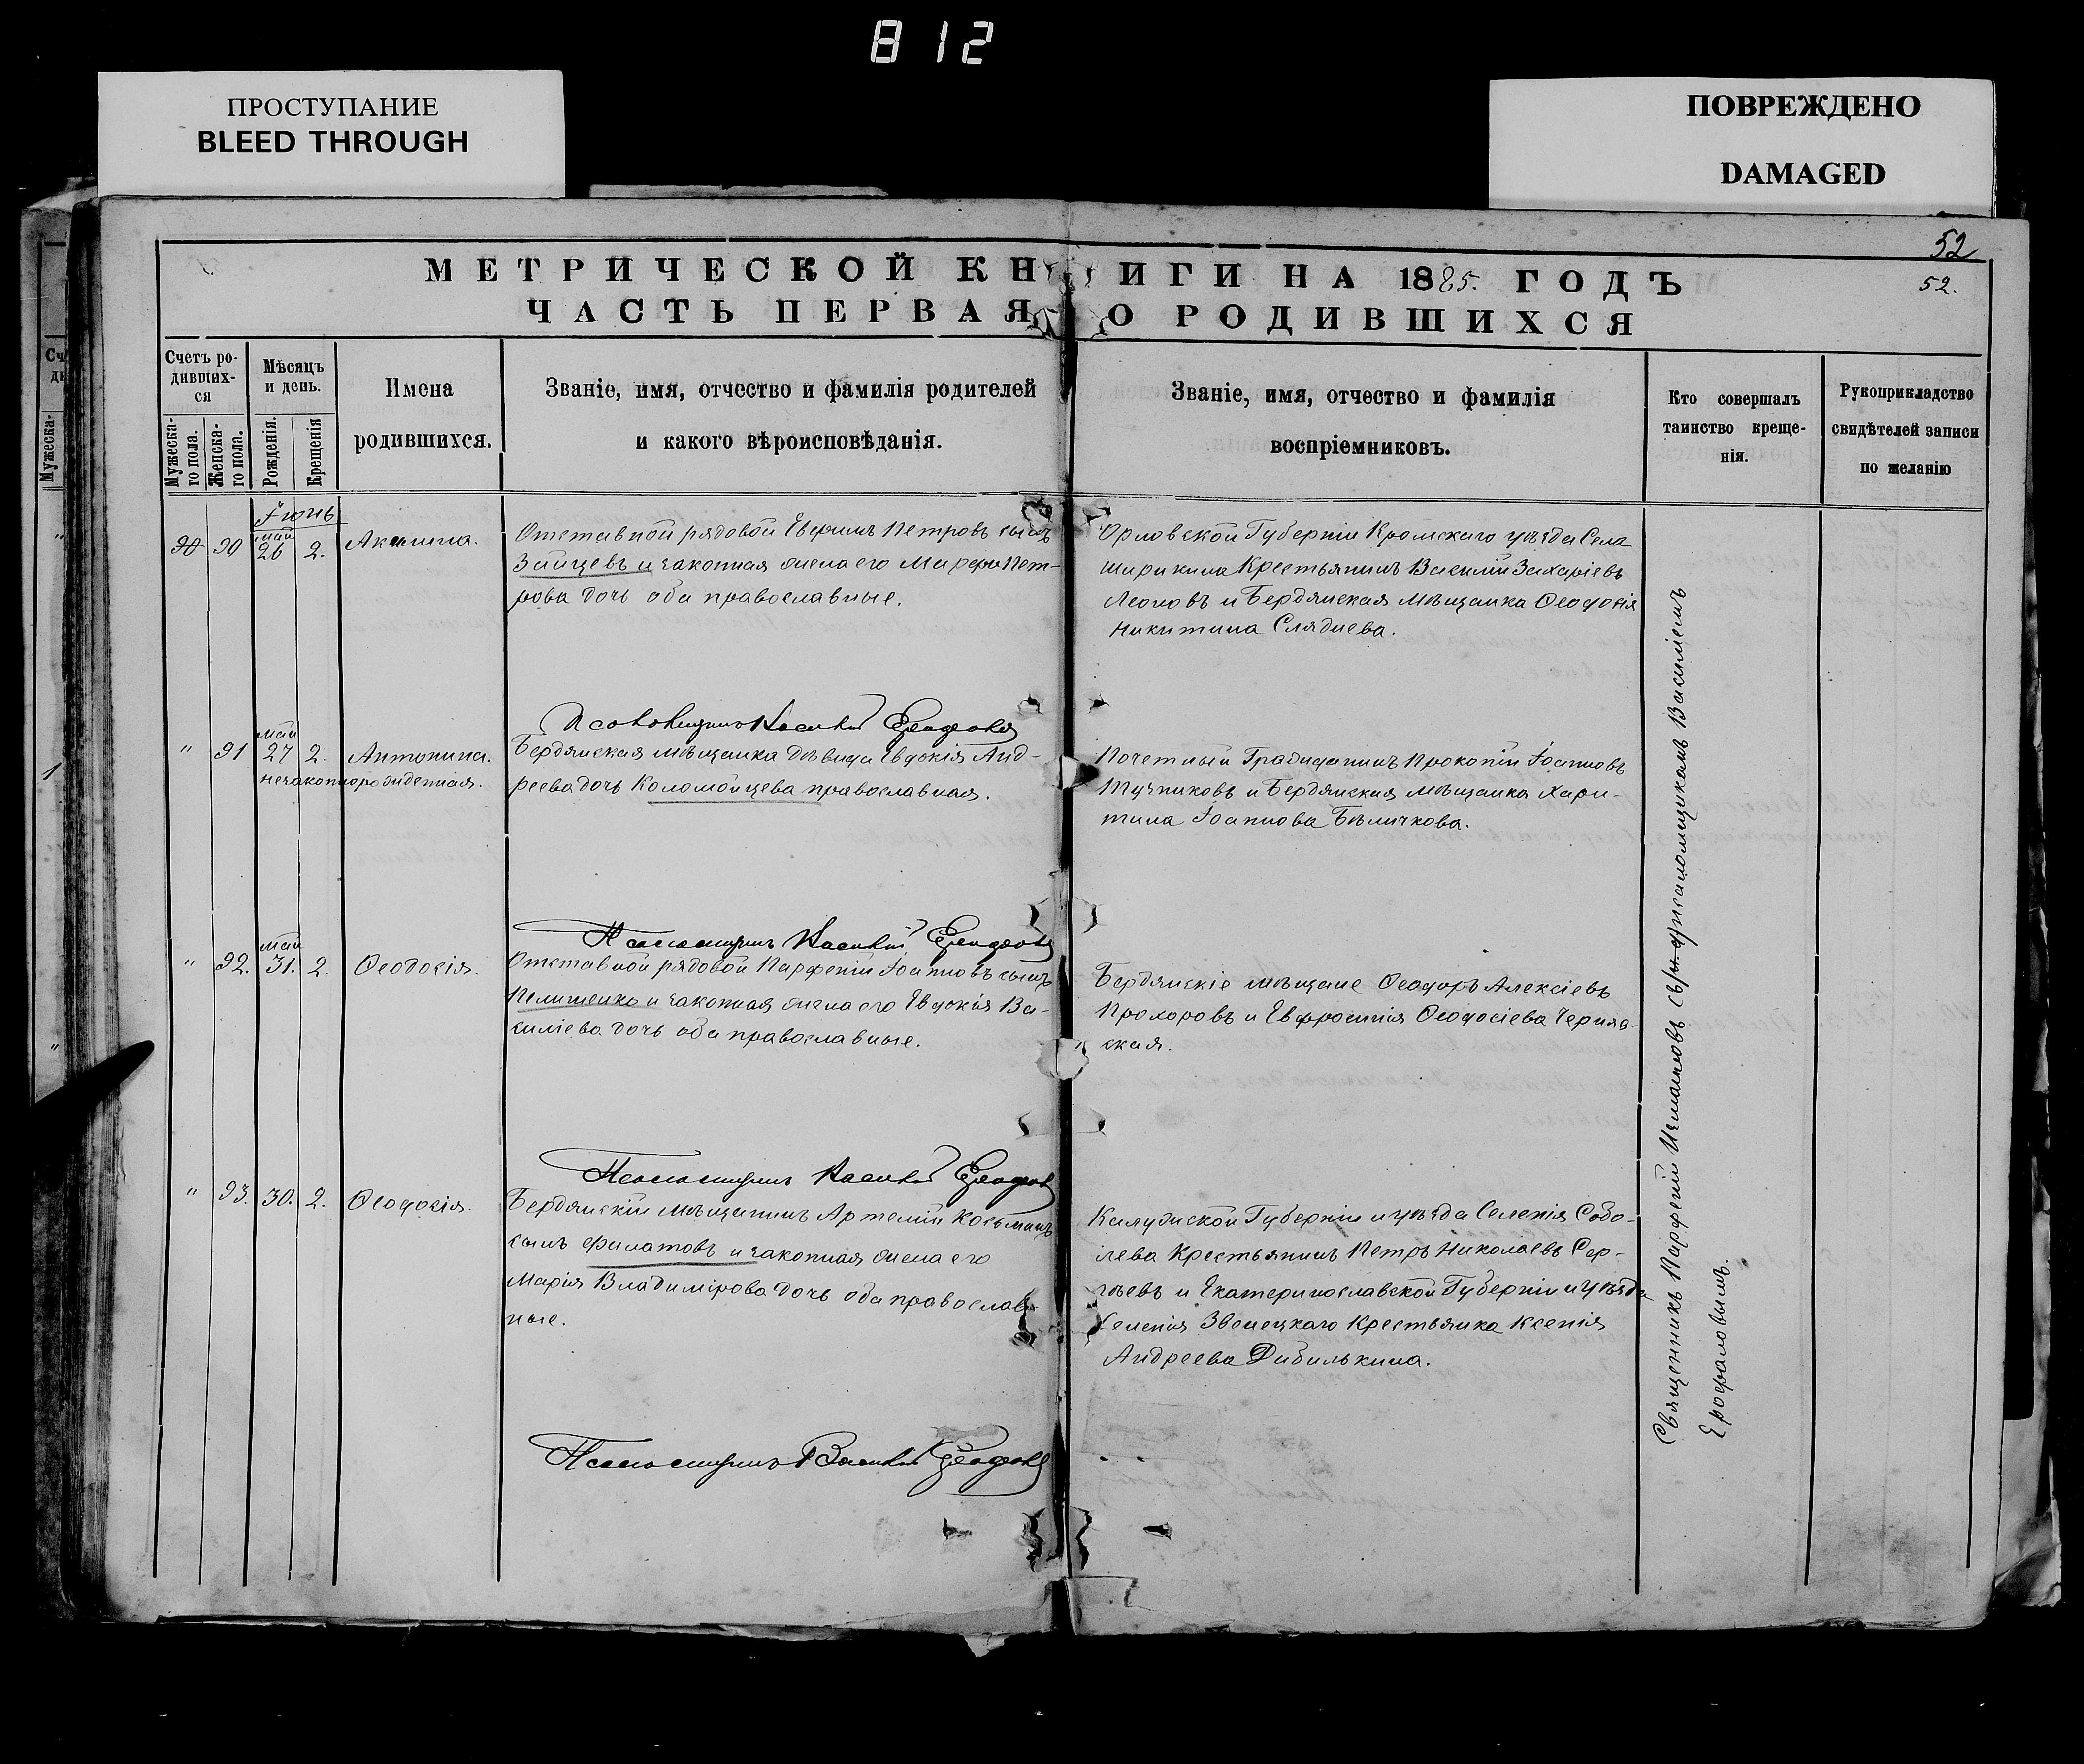 812
ПРОСТУПАНИЕ
BLEED THROUGH
ПОВРЕЖДЕНО
DAMAGED
52
52.
МЕТРИЧЕСКОЙ КНИГИ НА 1885. ГОДЪ
ЧАСТЬ ПЕРВАЯ О РОДИВШИХСЯ
Счетъ ро-
дивших-
ся
Мужеска-
го пола.
Женска-
го пола.
Мѣсяцъ
и день.
Рожденія.
Крещенія
Имена
родившихся.
Званіе, имя, отчество и фамилія родителей
и какого вѣроисповѣданія.
Званіе, имя, отчество и фамилія
воспріемниковъ.
Кто совершалъ
таинство креще-
нія.
Рукоприкладство
свидѣтелей записи
по желанію
Іюнь
май
90 90 26 2. Акилина.
Отставной рядовой Ефимъ Петровъ сынъ
Зайцевъ и законная жена его Марфа Пет-
рова дочь оба православные.
Орловской Губерніи Кромскаго уѣзда Села
Ширикина Крестьянинъ Василій Захаріевъ
Леоновъ и Бердянская мѣщанка Ѳеодосія
Никитина Сляднева.
Псаломщикъ Василій
май
" 91 27 2. Антонина.
незаконнорожденная.
Бердянская мѣщанка дѣвица Евдокія Анд-
реева дочь Коломойцева православная.
Почетный Гражданинъ Прокопій Іоанновъ
Тучниковъ и Бердянская мѣщанка Хари-
тина Іоаннова Бѣличкова.
Псаломщикъ Василій
май
" 92. 31. 2. Ѳеодосія.
Отставной рядовой Парфеній Іоанновъ сынъ
Пелишенко и законная жена его Евдокія Ва-
силіева дочь оба православные.
Бердянскіе мѣщане Ѳеодоръ Алексіевъ
Прохоровъ и Евфросинія Ѳеодосіева Черняв-
ская.
Псаломщикъ Василій
" 93. 30. 2. Ѳеодосія.
Бердянскій мѣщанинъ Артемій Косьминъ
сынъ Филатовъ и законная жена его
Марія Владимірова дочь оба православ-
ные.
Калужской Губерніи и уѣзда Селенія Собо-
лева Крестьянинъ Петръ Николаевъ Сер-
гѣевъ и Екатеринославской Губерніи и уѣзда
Селенія Звонецкаго Крестьянка Ксенія
Андреева Дибилькина.
Псаломщикъ Василій
Священникъ Парфеній съ псаломщикомъ Василіемъ
Ерофаловымъ.